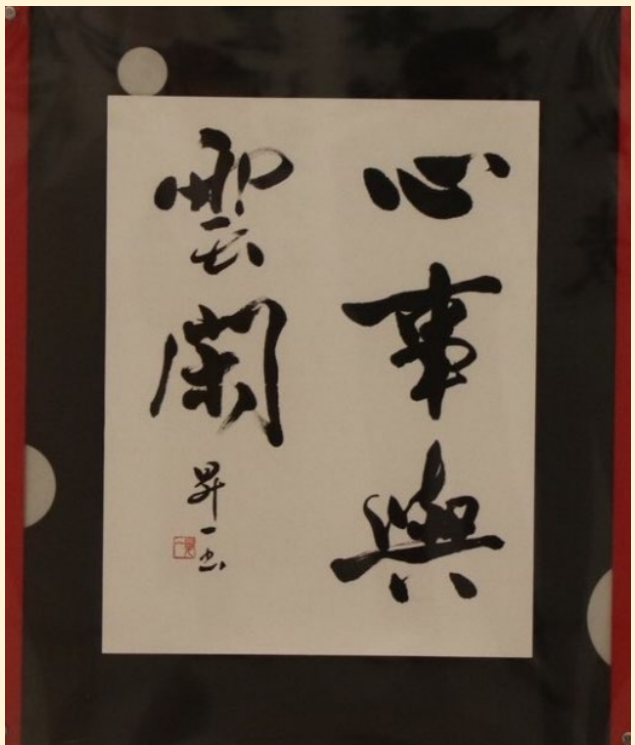 心事與
雲閑
昇一書